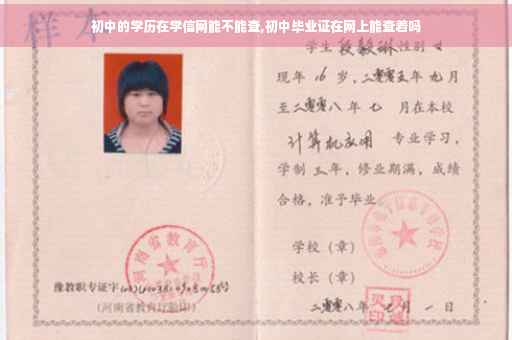 初中的学历在学信网能不能查,初中毕业证在网上能查着吗
样本
学生 段毅琳 性别 女
现年 16 岁,二零零五年 九月
至二零零八年 七 月在本校
计算机应用 专业学习,
学制 三年,修业期满,成绩
合格,准予毕业
学校(章)
校长(章)
二零零八年 七 月 一 日
河南省教育厅
豫教职专证字
(河南省教育厅验印)